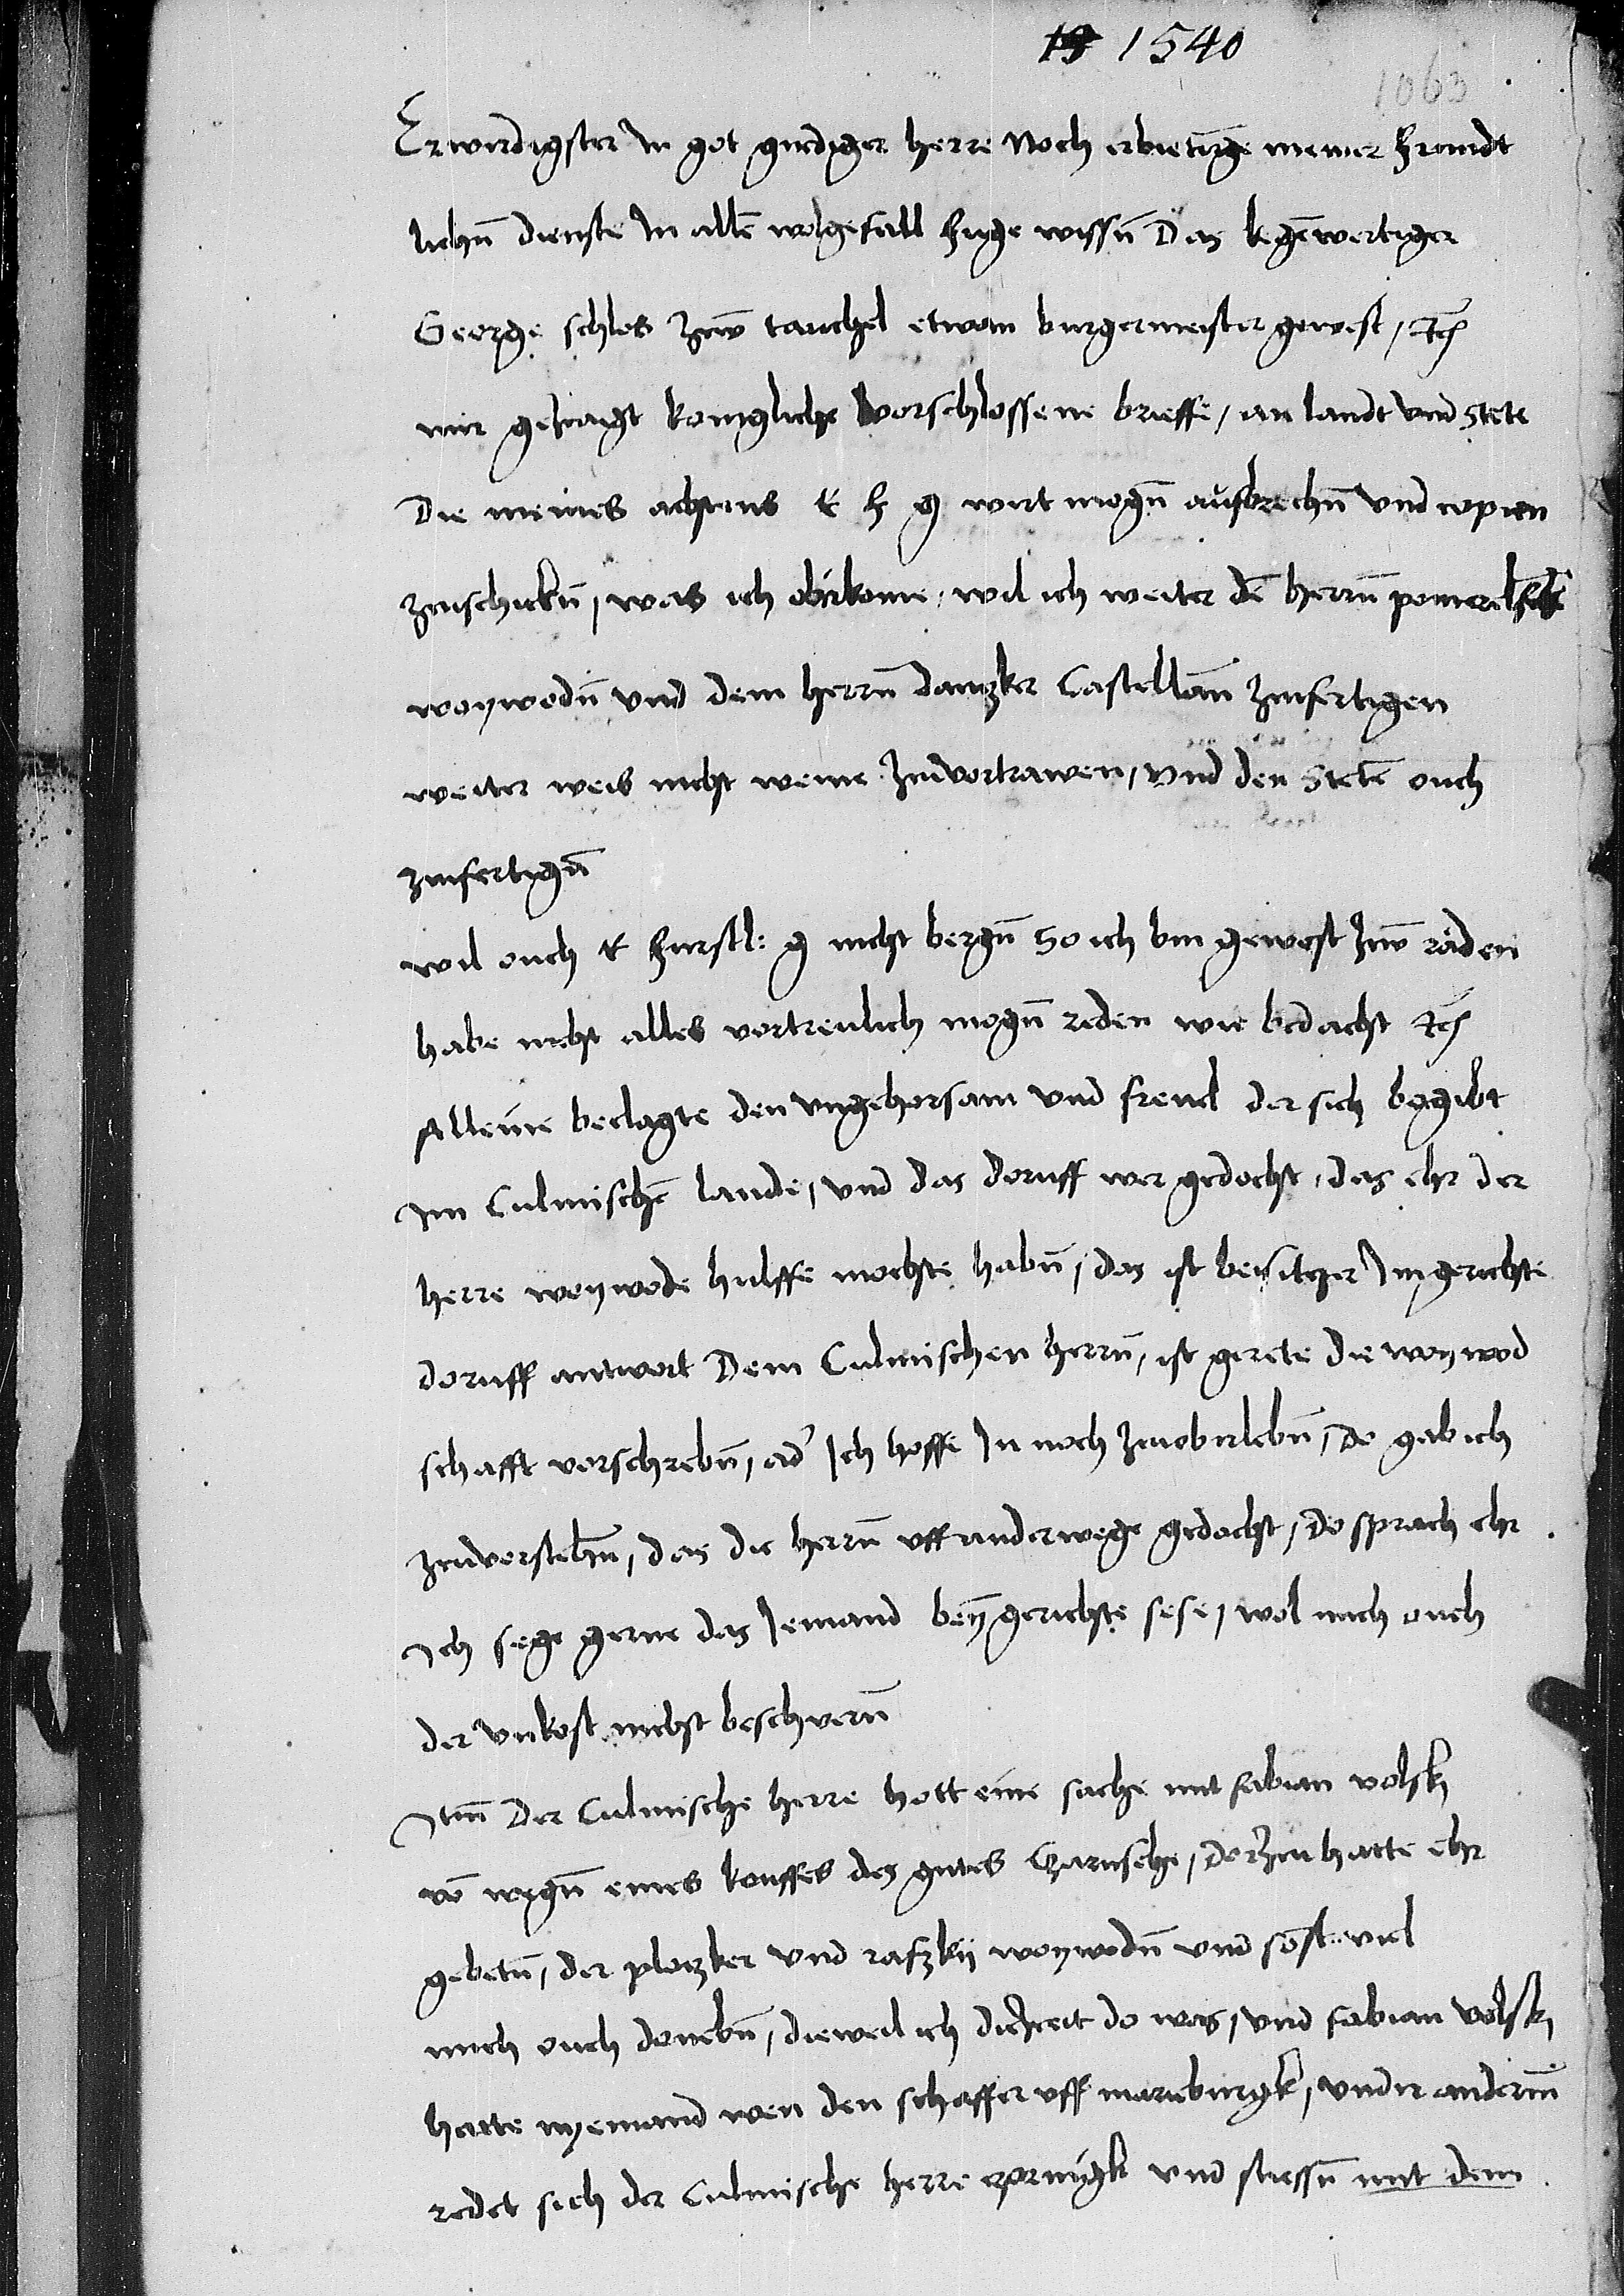 1540
1063
Erwirdigster In got gnediger herre Noch erbietunge meiner frundt
lichn̄ dienste In alle wolgefall fuge wissn̄ Das kegēwertiger
George schlos zuw tauchel etwan burgermeister gewest, etc
mir gefragt konigliche vorschlossene brieffe, an landt vnd Stete
Die meines achtens E f g wirt mogn̄ aufbrechn̄ vnd copien
zuschickn̄, was ich obirkome, wil ich weiter dē herrn̄ pomerelsche
woywodn̄ vnd dem herrn̄ danzker Castellan̄ zufertigen
weiter weis nicht weme zuvortrawen, vnd den Stetē ouch
zufertign̄
wil ouch E furstl: g nicht bergn̄ So ich bin gewest zuw räden
habe nicht alles vortreulich mogn̄ reden wie bedacht etc
Alleine beclagte den vngehorsam vnd frevel der sich begibt
Im Culmischē lande, vnd das doruff wer gedocht, das ehr der
herre woywode hulffe mochte habn̄, das ist beisitzer Im gerichte
doruff antwort Dem Culmischen herrn̄, ist gerete die woywod
schafft vorschrebn̄, adr Ich hoffe In noch zuobirlebn̄, do gab ich
zuvorstehn̄, das die herrn̄ vff ander wege gedocht, do sprach ehr
Ich sege gerne das Jemand bey gerichte sese, wol mich ouch
der vnkost nicht beschwern̄
Itm̄ Der Culmische herre hott eine sache mit fabian volsky
vō wegn̄ eines kouffes des gutes Czarusche, dorzu hatte ehr
gebetn̄, der plotzker vnd rafzky woywodn̄ vnd sost viel
mich ouch donebn̄, dieweil ich diezeit do was, vnd fabian volsky
hatte nyemand wen den schaffer vff marieburgk, vndir anderm
redet sich der Culmische herre czornigk vnd stiessn̄ mit dem